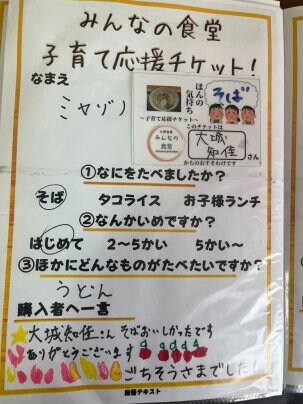 みんなの食堂
子育て応援チケット!
なまえ
ミヤゾノ
ほんの
気持ち
そば
〜子育て応援チケット〜
このチケットは
みんなの
食堂
大城
知佳
さん
からのおすそわけです
①なにをたべましたか?
そば タコライス お子様ランチ
②なんかいめですか?
はじめて 2〜5かい 5かい〜
③ほかにどんなものがたべたいですか?
うどん
購入者へ一言
大城知佳さん そばおいしかったです
ありがとうございます
ごちそうさまでした!